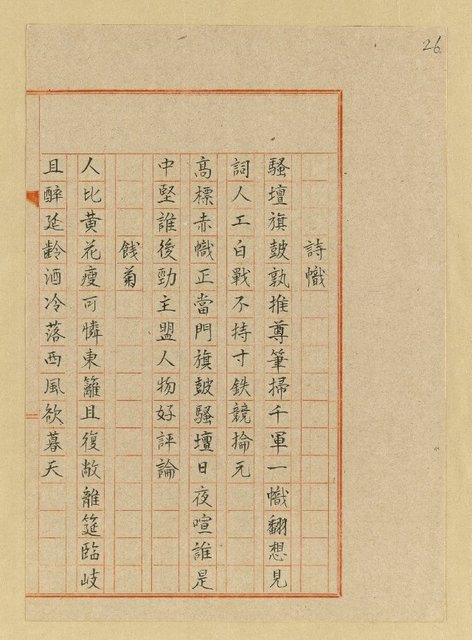 26
詩幟
騷壇旗鼓孰推尊筆掃千軍一幟翻想見
詞人工白戰不持寸鉄競掄元
高標赤幟正當門旗鼓騷壇日夜喧誰是
中堅誰後勁主盟人物好評論
餞菊
人比黃花瘦可憐東籬且復敞離筵臨岐
且醉延齡酒冷落西風欲暮天